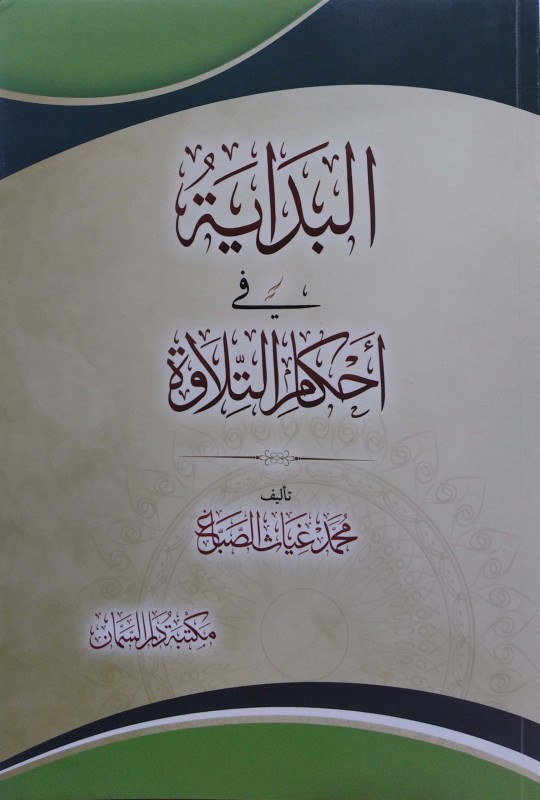 البَدَايَةُ
في
أَحْكَامِ التِّلَاوَة
تأليف
مُحَمَّد غِيَاث الصَّبَّاغ
مكتبة دار السمان